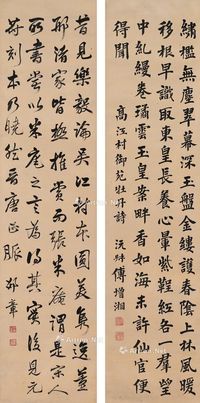 繡檻無塵翠幕深玉盤金縷護春陰上林風暖
移根早識取東皇長養心暈紫鞓紅各一群望
中亂縵卷璚雲玉皇案畔香如海未許仙官便
得聞 高江村御苑牡丹詩 沅叔傅增湘
昔見樂毅論吳江村本圓美雋逸董
邢諸家皆極推賞而張米菴謂是宋人
所書嘗以米庵之言為得其實後見元
刻本乃曉然晉唐正脈 邵章